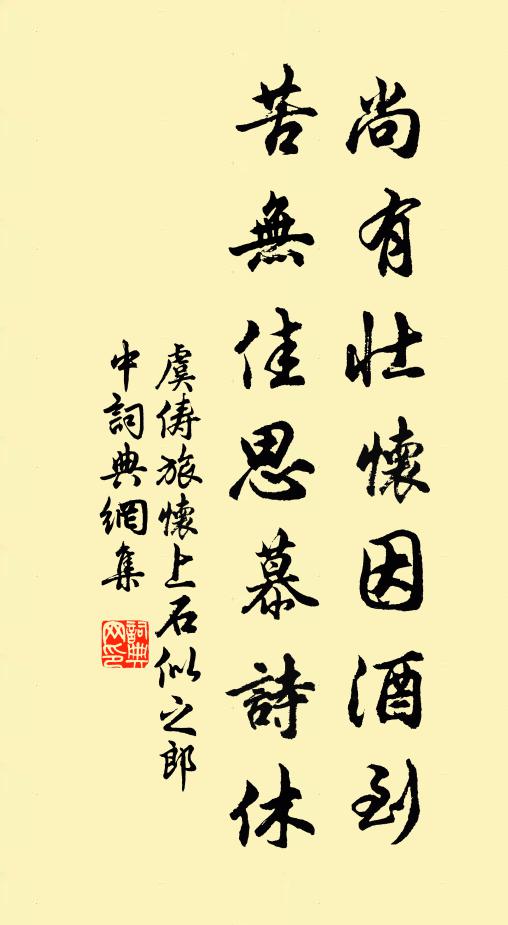 尚有壯懷因酒到
苦無佳思慕詩休
虞俦旅懷上石似之郎
中詞典網集
詞典
网印